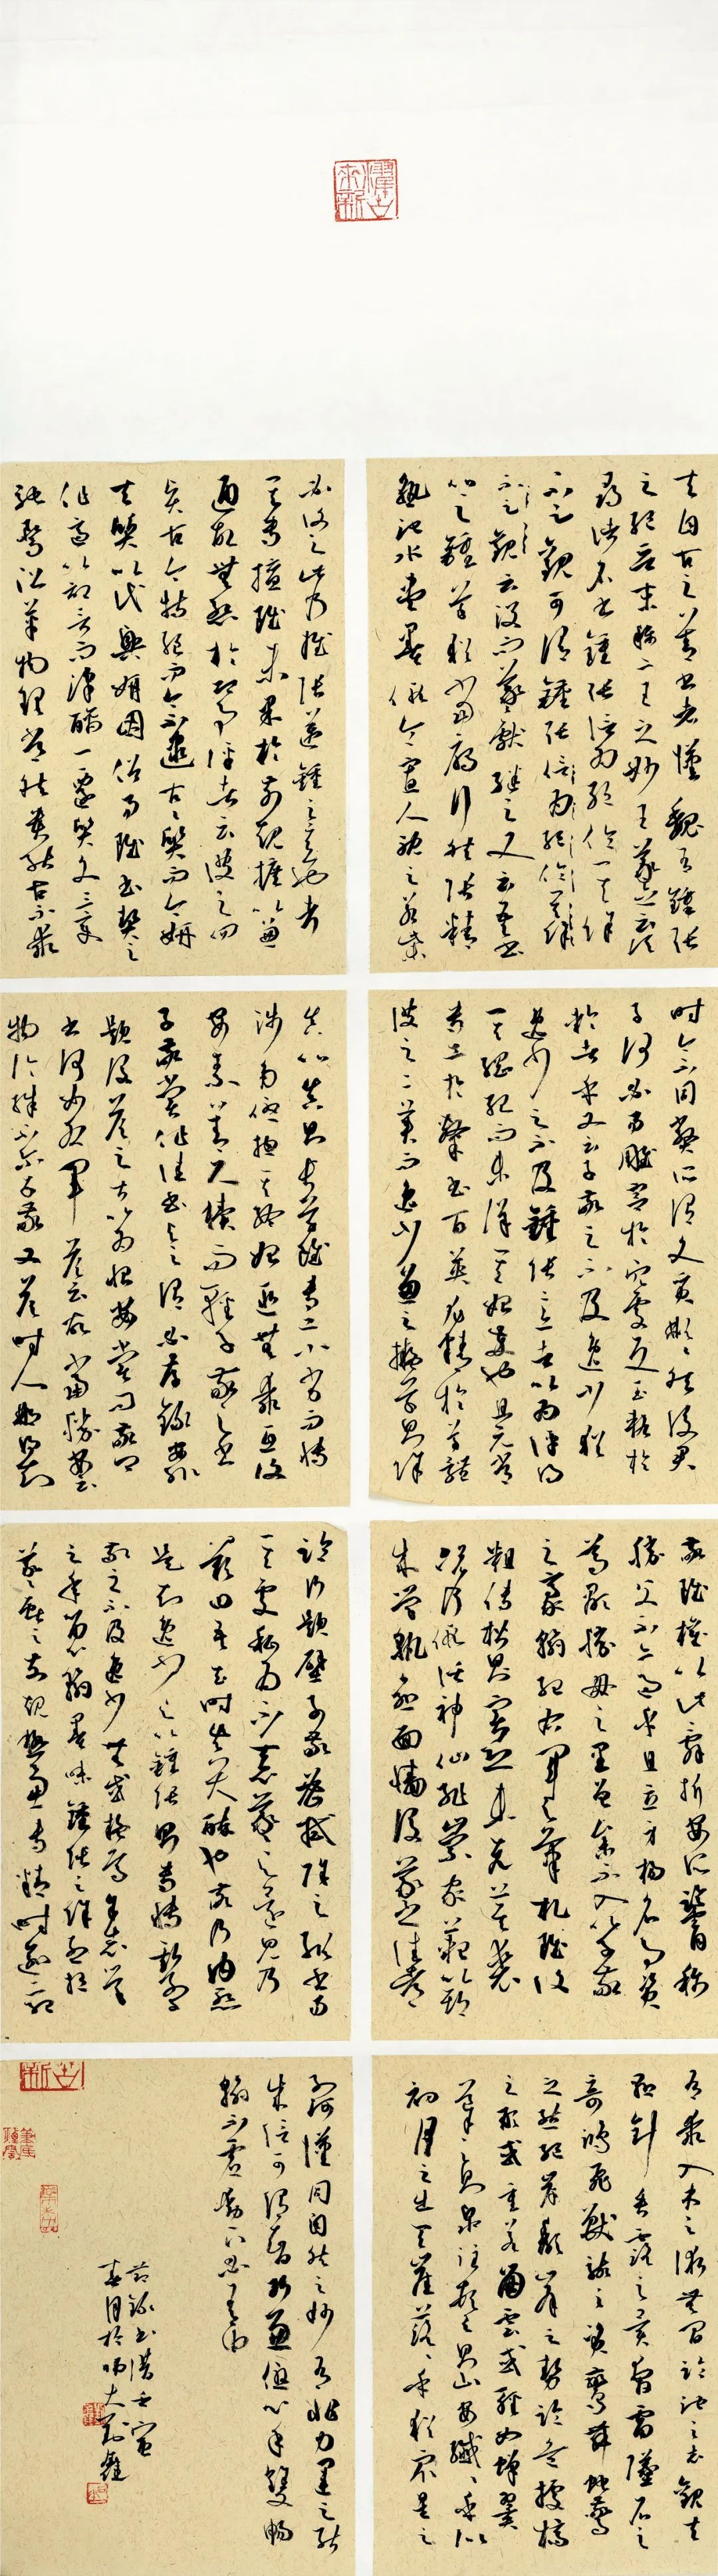 夫自古之善書者漢魏有鍾張
之絕晉末稱二王之妙王羲之云頃
尋諸名書鍾張信為絕倫其餘
不足觀可謂鍾張信為絕倫其餘
不足觀云沒而羲獻繼之又云吾書
比之鍾草猶當雁行然張精
熟池水盡墨假令寡人耽之若此
必謝之此乃推張邁鍾之意也考
其專擅雖未果於前規摭以兼
通故無慚於即事評者云彼之四
賢古今特絕而今不逮古古質而今妍
夫質以代興妍因俗易雖書契之
作適以記言而淳醨一遷質文三變
馳騖沿革物理常然貴能古不乖
時今不同弊所謂文質彬彬然後君
子何必易雕宮於穴處反玉輅於
椎者乎又云子敬之不及逸少猶
逸少之不及鍾張意者以為評得
其綱紀而未詳其始卒也且元常
專工於隸書百英尤精於草體
彼之二美而逸少兼之擬草則餘
真比真則長草雖專工小劣而博
涉多優總其終始匪無乖互謝
安素善尺牘而輕子敬之書
子敬嘗作佳書與之謂必存錄安輒
題後答之甚以為恨安嘗問敬卿
書何如右軍答云故當勝安云
物論殊不爾子敬又答時人那得知
敬雖權以此辭折安所鑒自稱
勝父不亦過乎且立身揚名事資
尊顯勝母之里曾參不入以子敬
之豪翰紹右軍之筆札雖復
粗傳楷則實恐未克箕裘
況乃假託神仙恥崇家範以斯
成學孰愈面牆後羲之往都
臨行題壁子敬密拭除之輒書易
其處私為不惡羲之還見乃
歎曰吾去時真大醉也敬乃內慚
是知逸少之比鍾張則專博斯別
敬之不及逸少無或疑焉余志學
之年留心翰墨味鍾張之餘烈挹
羲獻之前規極慮專精時逾二紀
有乖入木之術無間臨池之志觀夫
懸針垂露之異奔雷墜石之
奇鴻飛獸駭之資鸞舞蛇驚
之態絕岸頹峰之勢臨危據槁
之形或重若崩雲或輕如蟬翼
導之則泉注頓之則山安纖纖乎似
初月之出天崖落落乎猶眾星之
列河漢同自然之妙有非力運之能
成信可謂智巧兼優心手雙暢
翰不虛動下必有由
節錄書譜壬寅
春月於師大